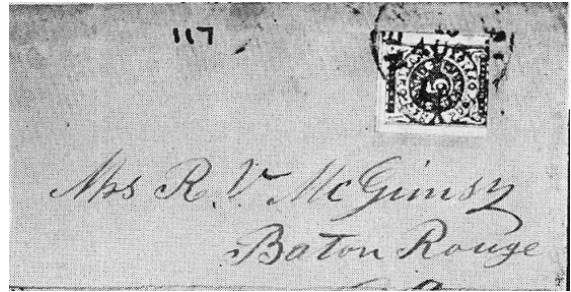 117
Mrs R. V. McGimsy
Baton Rouge